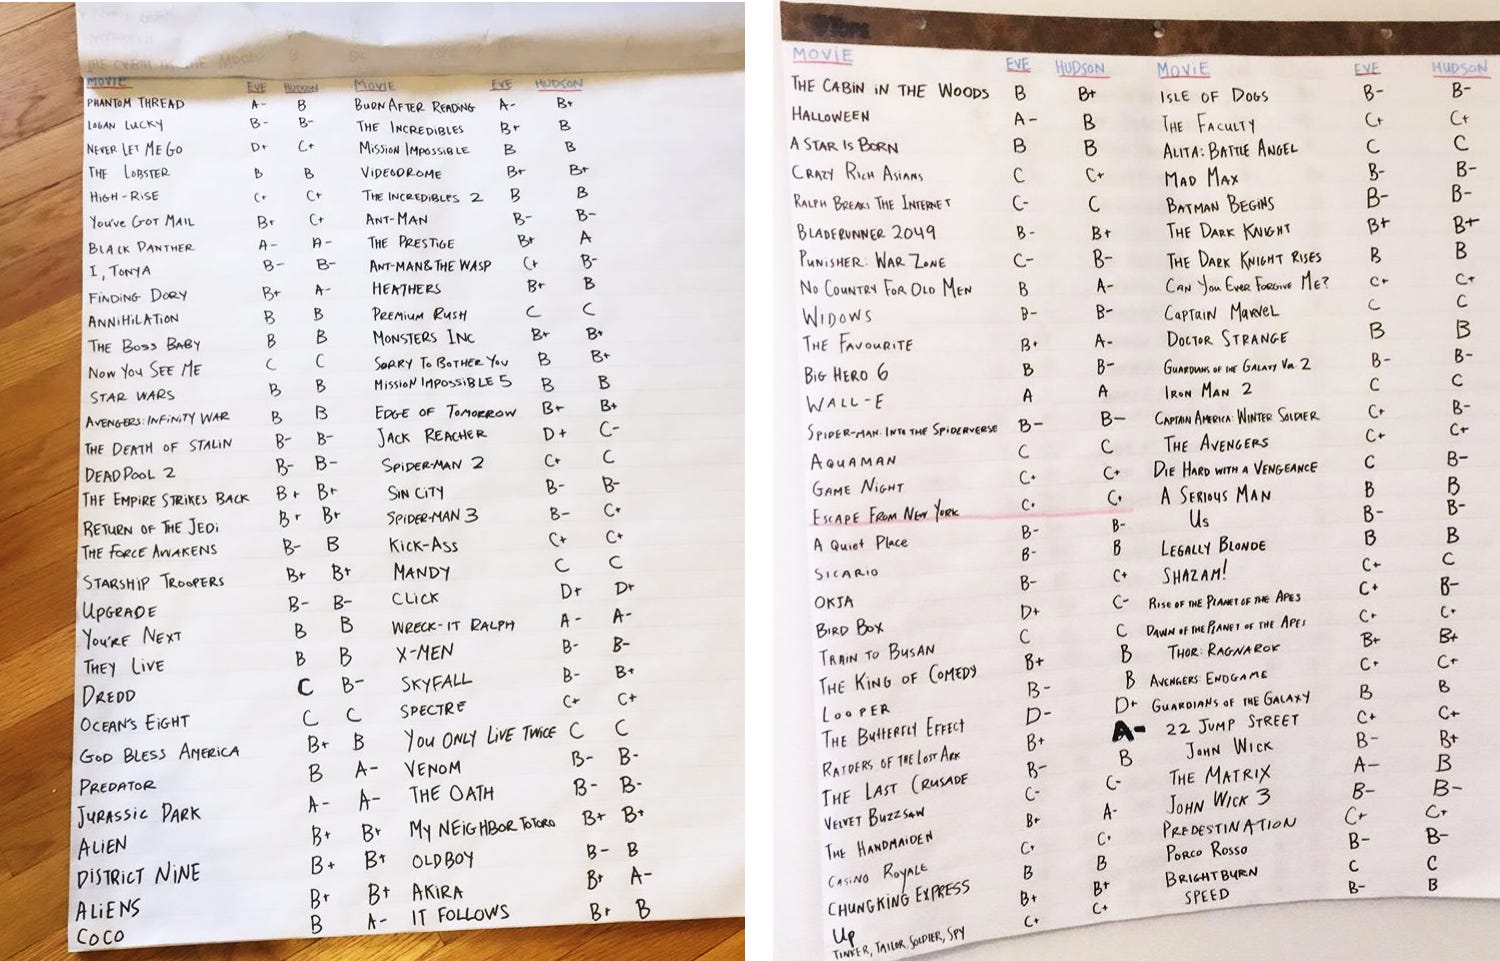 THE CABIN IN THE WOODS
MOVIE EVE HUDSON MOVIE EVE HUDSON
PHANTOM THREAD A- B BURN AFTER READING A- B+
LOGAN LUCKY B- B- THE INCREDIBLES B+ B
NEVER LET ME GO D+ C+ MISSION IMPOSSIBLE B B
THE LOBSTER B B VIDEODROME B+ B+
HIGH-RISE C+ C+ THE INCREDIBLES 2 B B
YOU'VE GOT MAIL B+ C+ ANT-MAN B- B-
BLACK PANTHER A- A- THE PRESTIGE B+ A
I, TONYA B- B- ANT-MAN & THE WASP C+ B-
FINDING DORY B+ A- HEATHERS B+ B
ANNIHILATION B B PREMIUM RUSH C C
THE BOSS BABY B B MONSTERS INC B+ B+
NOW YOU SEE ME C C SORRY TO BOTHER YOU B B+
STAR WARS B B MISSION IMPOSSIBLE 5 B B
AVENGERS: INFINITY WAR B B EDGE OF TOMORROW B+ B+
THE DEATH OF STALIN B- B- JACK REACHER D+ C-
DEADPOOL 2 B- B- SPIDER-MAN 2 C+ C
THE EMPIRE STRIKES BACK B+ B+ SIN CITY B- B-
RETURN OF THE JEDI B+ B+ SPIDER-MAN 3 B- C+
THE FORCE AWAKENS B- B KICK-ASS C+ C+
STARSHIP TROOPERS B+ B+ MANDY C C
UPGRADE B- B- CLICK D+ D+
YOU'RE NEXT B B WRECK-IT RALPH A- A-
THEY LIVE B B X-MEN B- B-
DREDD C B- SKYFALL B- B+
OCEAN'S EIGHT C C SPECTRE C+ C+
GOD BLESS AMERICA B+ B YOU ONLY LIVE TWICE C C
PREDATOR B A- VENOM B- B-
JURASSIC PARK A- A- THE OATH B- B-
ALIEN B+ B+ MY NEIGHBOR TOTORO B+ B+
DISTRICT NINE B+ B+ OLDBOY B- B
ALIENS B+ B+ AKIRA B+ A-
COCO B A- IT FOLLOWS B+ B
MOVIE EVE HUDSON MOVIE EVE HUDSON
THE CABIN IN THE WOODS B B+ ISLE OF DOGS B- B-
HALLOWEEN A- B THE FACULTY C+ C+
A STAR IS BORN B B ALITA: BATTLE ANGEL C C
CRAZY RICH ASIANS C C+ MAD MAX B- B-
RALPH BREAKS THE INTERNET C- C BATMAN BEGINS B- B-
BLADERUNNER 2049 B- B+ THE DARK KNIGHT B+ B+
PUNISHER: WAR ZONE C- B- THE DARK KNIGHT RISES B B
NO COUNTRY FOR OLD MEN B A- CAN YOU EVER FORGIVE ME? C+ C+
WIDOWS B- B- CAPTAIN MARVEL C C
THE FAVOURITE B+ A- DOCTOR STRANGE B B
BIG HERO 6 B B- GUARDIANS OF THE GALAXY VOL 2 B- B-
WALL-E A A IRON MAN 2 C C
SPIDER-MAN: INTO THE SPIDERVERSE B- B- CAPTAIN AMERICA: WINTER SOLDIER C+ B-
AQUAMAN C C THE AVENGERS C+ C+
GAME NIGHT C+ C+ DIE HARD WITH A VENGEANCE C B-
ESCAPE FROM NEW YORK C+ C+ A SERIOUS MAN B B
A QUIET PLACE B- B- US B- B-
SICARIO B- B LEGALLY BLONDE B B
OKJA B- C+ SHAZAM! C+ C
BIRD BOX D+ C- RISE OF THE PLANET OF THE APES C+ B-
TRAIN TO BUSAN C C DAWN OF THE PLANET OF THE APES C+ C+
THE KING OF COMEDY B+ B THOR: RAGNAROK B+ B+
LOOPER B- B AVENGERS: ENDGAME C+ C+
THE BUTTERFLY EFFECT D- D+ GUARDIANS OF THE GALAXY B B
RAIDERS OF THE LOST ARK B+ A- 22 JUMP STREET C+ C+
THE LAST CRUSADE B- B JOHN WICK B- B+
VELVET BUZZSAW C- C- THE MATRIX A- B
THE HANDMAIDEN B+ A- JOHN WICK 3 B- B-
CASINO ROYALE C+ C+ PREDESTINATION C+ C+
CHUNGKING EXPRESS B B PORCO ROSSO B- B-
UP B+ B+ BRIGHTBURN C C
TINKER, TAILOR, SOLDIER, SPY C+ C+ SPEED B- B